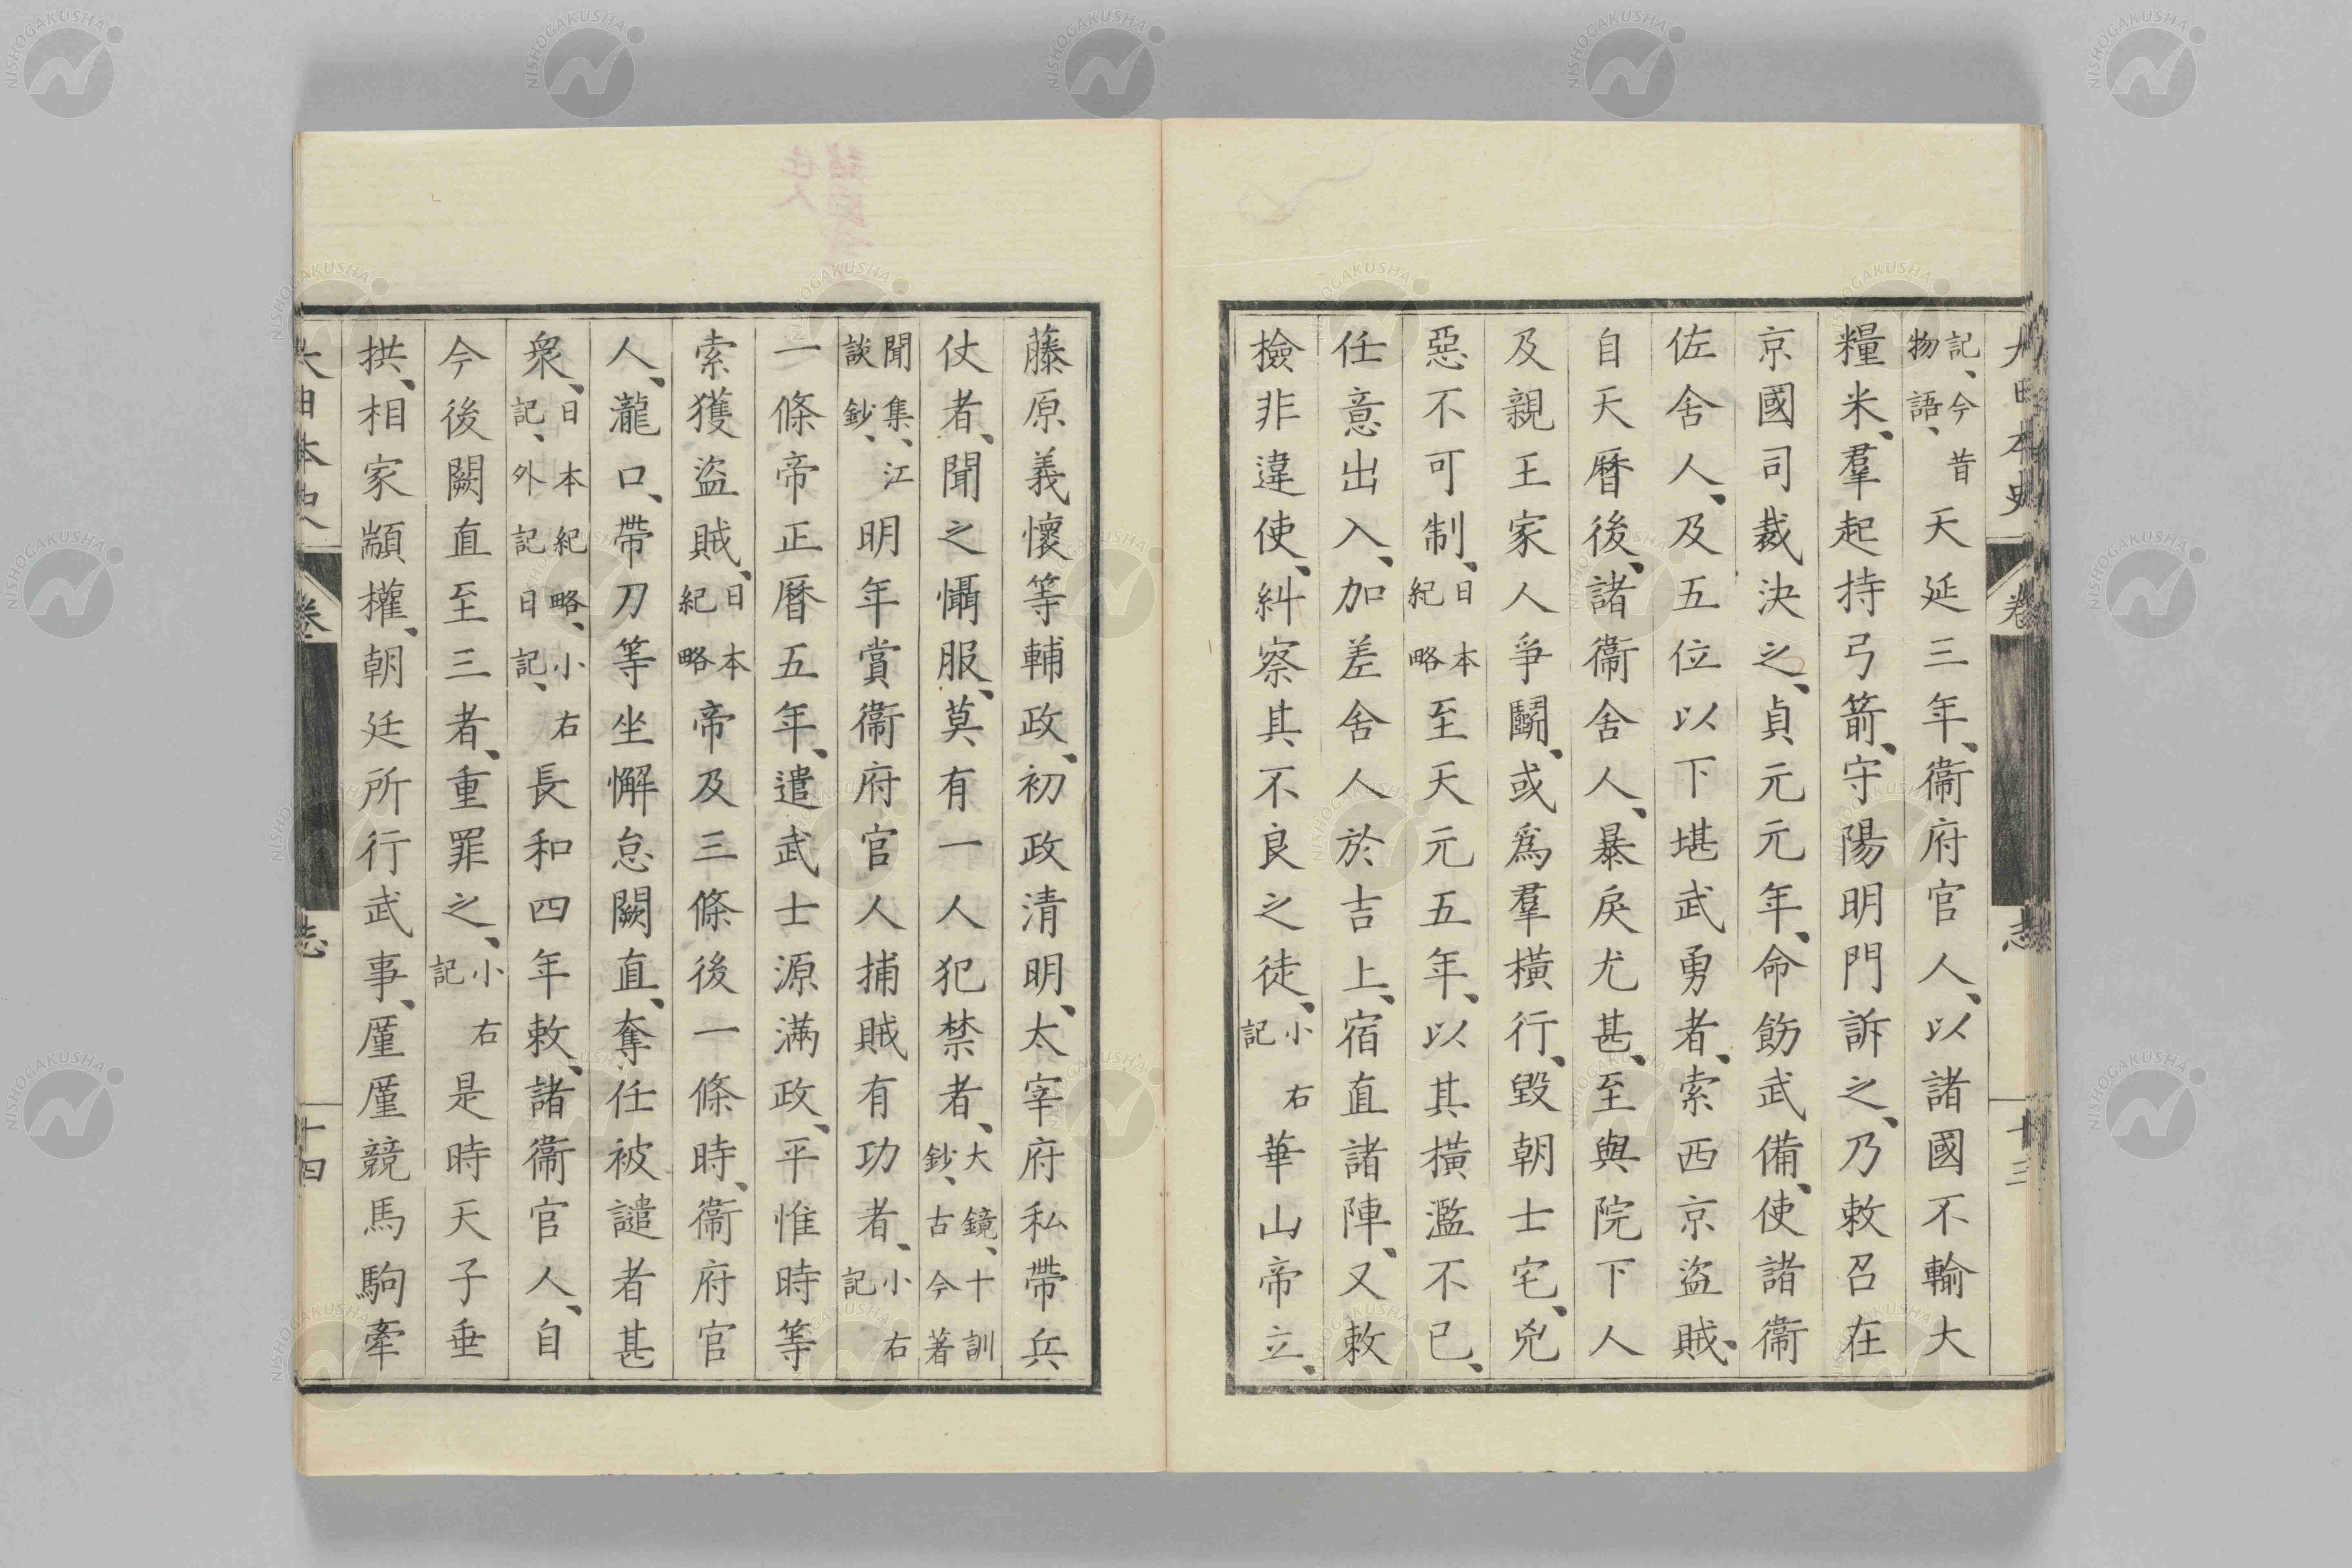 大日本史 卷 志 十三
記、今昔物語、天延三年、衞府官人、以諸國不輸大
糧米、羣起持弓箭、守陽明門訴之、乃敕召在
京國司裁決之、貞元元年、命飭武備、使諸衞
佐舍人、及五位以下堪武勇者、索西京盜賊、
自天曆後、諸衞舍人、暴戾尤甚、至與院下人
及親王家人爭鬭、或爲羣橫行、毀朝士宅、兇
惡不可制、日本紀略至天元五年、以其橫濫不已、
任意出入、加差舍人於吉上、宿直諸陣、又敕
檢非違使、糾察其不良之徒、小右記華山帝立、
藤原義懷等輔政、初政清明、太宰府私帶兵
仗者、聞之懾服、莫有一人犯禁者、大鏡、十訓鈔、古今著
聞集、江談鈔、明年賞衞府官人捕賊有功者、小右記
一條帝正曆五年、遣武士源滿政、平惟時等
索獲盜賊、日本紀略帝及三條後一條時、衞府官
人、瀧口、帶刀等坐懈怠闕直、奪任被譴者甚
衆、日本紀略、小右記、外記日記、長和四年敕、諸衞官人、自
今後闕直至三者、重罪之、小右記是時天子垂
拱、相家顓權、朝廷所行武事、廑廑競馬駒牽
大日本史 卷 志 十四
NISHOGAKUSHA